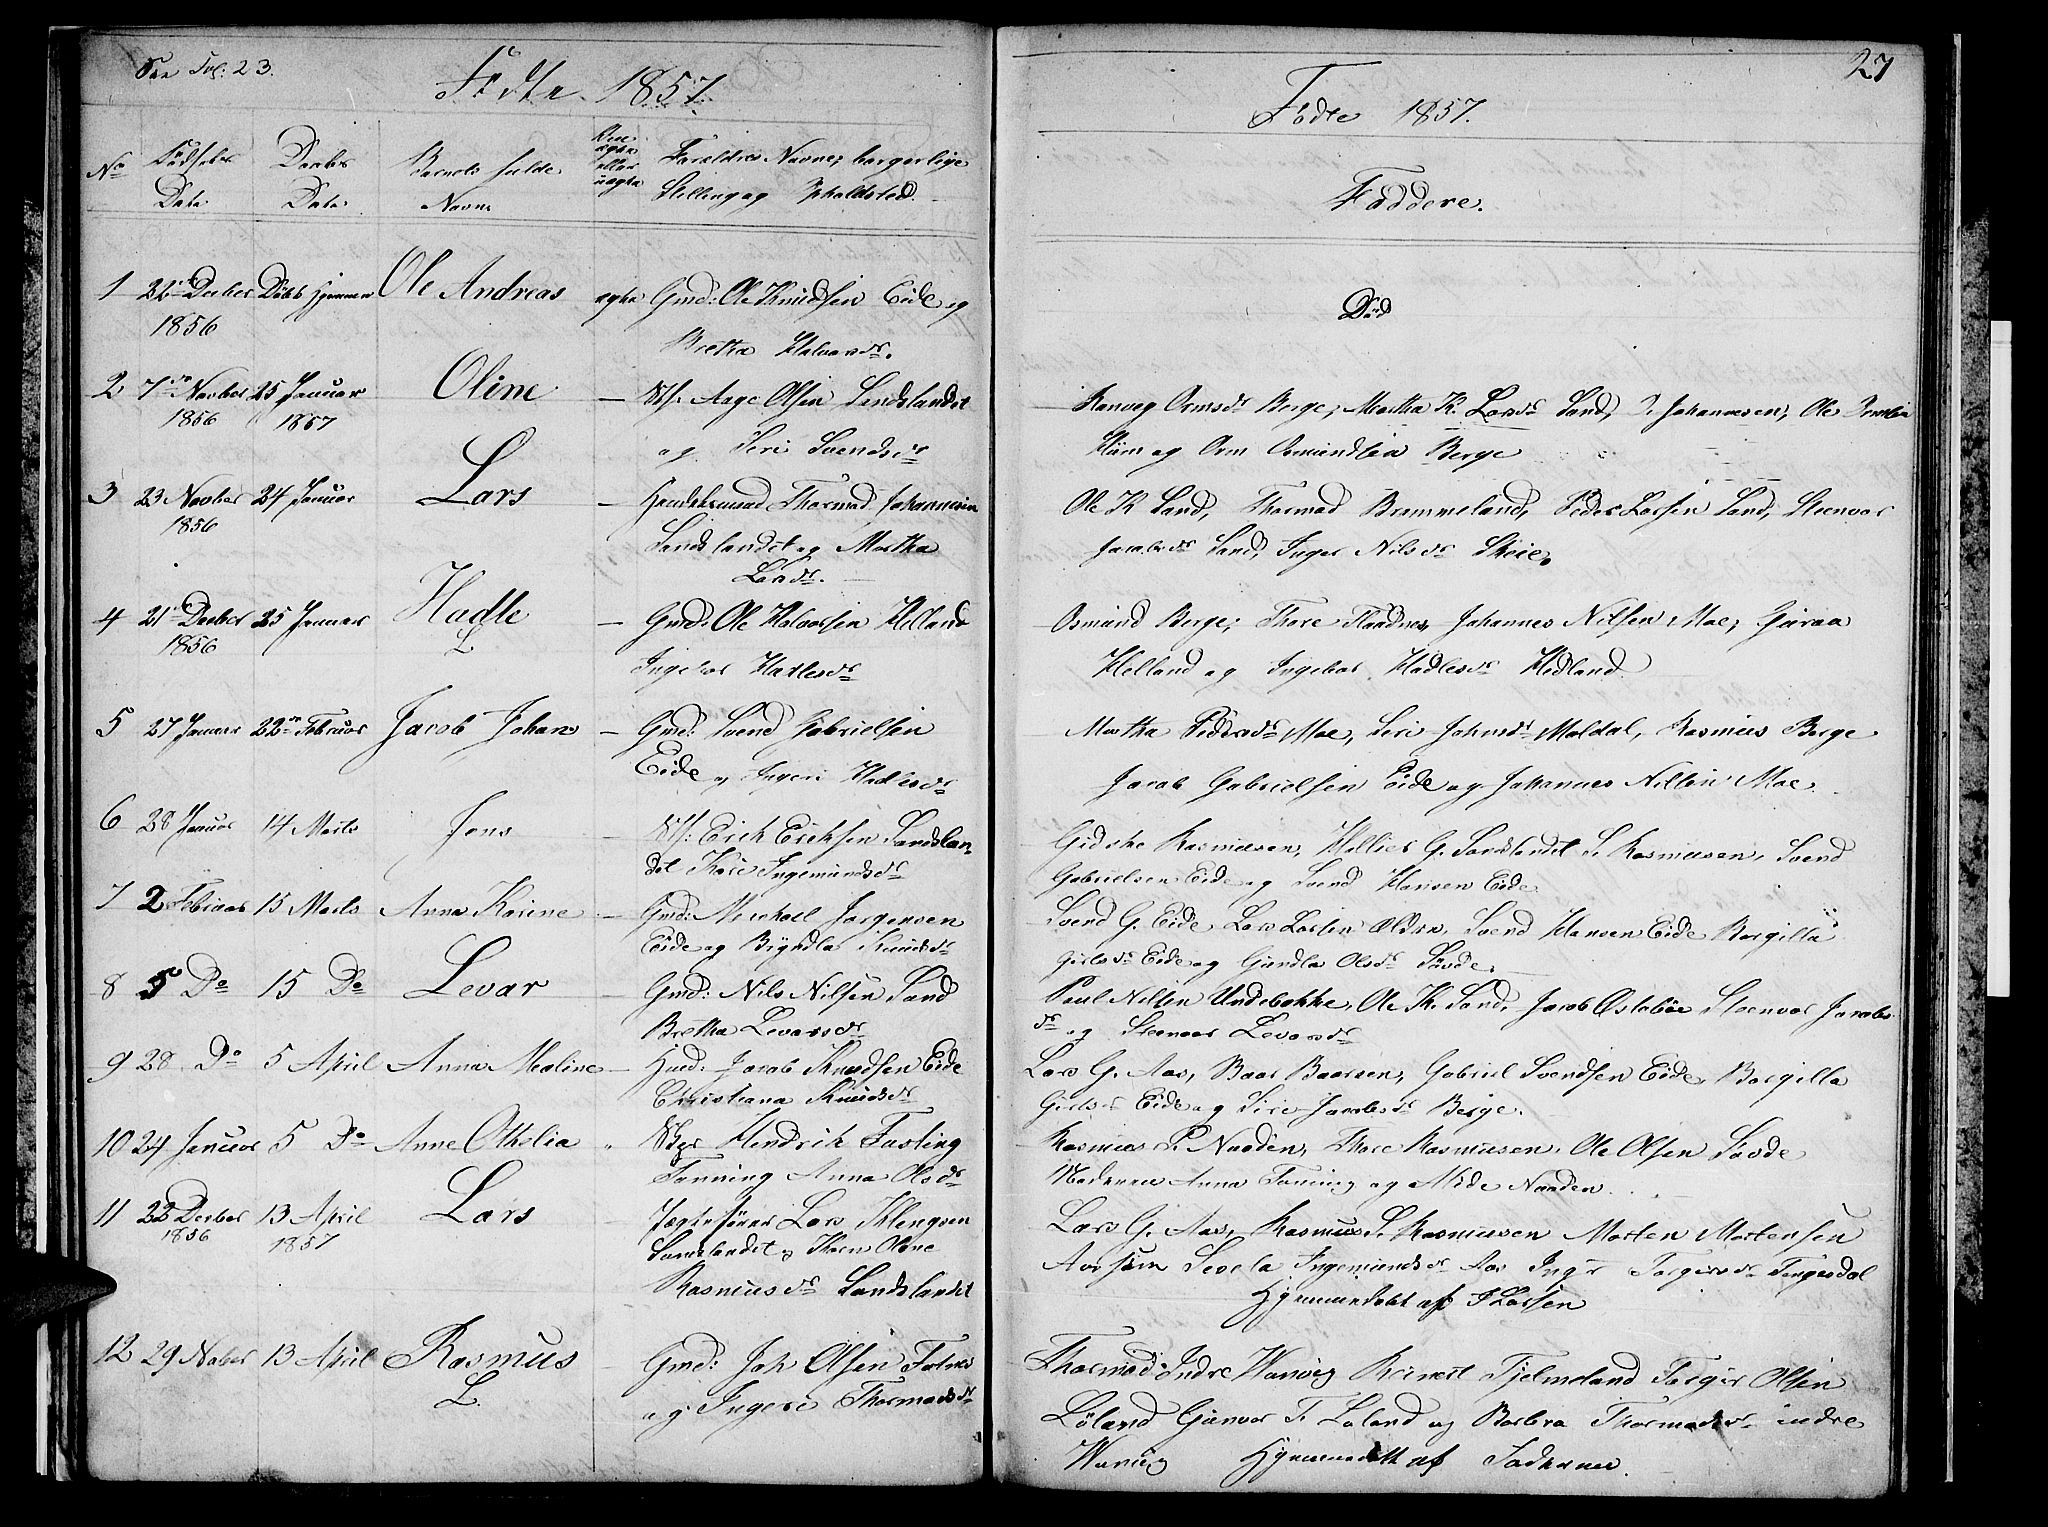 See Fol: 23.
Fødte 1857
No
Fødsels Data
Daabs Data
Barnets fulde Navne
Om ægte eller uægte
Forældres Navne, borgerlige
Stilling og Opholdsted.
1 22 Decber Døbt Hjemme Ole Andreas ægte Gmd: Ole Knudsen Eide og
1856
Bretha Halvorsdr.
2 7de Novber 25 Januar Oline — Aage Olsen Sandslandet
1856 1857
og Siri Svendsdr
3 23 Novber 24 Januar Lars — Thormod Johannesen
1856
Sandslandet og Martha
Larsdr.
4 21 Decber 25 Januar Hadle — Gmd: Ole Halvorsen Helland
1856 L
Ingebor Hadlesdr
5 27 Januar 22de Februar Jacob Johan — Gmd: Svend Gabrielsen
Eide og Ingeri Hadlesdr
6 28 Januar 14 Marts Jens — Erick Ericksen Sandslan-
det Kari Ingemundsdr
7 2 Februar 15 Marts Anna Karine — Gmd: Michael Jørgensen
Eide og Bryndla Knudsdr
8 5 Do 15 Do Levar — Gmd: Nils Nilsen Sand
Bretha Levarsdr
9 28 Do 5 April Anna Maline — Huusd: Jacob Knudsen Eide
Christiana Knudsdr
10 24 Januar 5 Do Anne Othelia " Hendrik Fasting
Tanning Anna Olsdr
11 22 Decber 13 April Lars — Jægtefører Lars Klengsen
1856 1857
Sandslandet og Karn Oline
Rasmusdr Sandslandet
12 29 Nober 13 April Rasmus — Gmd: Joh Olsen
L.
og Ingeri Thormodsdr
27
Fødte 1857.
Faddere.
Død
Ranveg Ormsdr Berge, Martha K. Larsdr Sand, P. Johannesen, Ole
og Orm Osmundsen Berge
Ole K Sand, Thormod Brommeland, Peder Larsen Sand, Steenvor
Jacobsdr Sand, Inger Nilsdr Skeie.
Osmund Berge, Thore Johannes Nilsen Moe, Guroa
Helland og Ingebor Hadlesdr Helland
Martha Pedersdr Moe, Siri Johnsdr Maldal, Rasmus Berge
Jacob Gabrielsen Eide og Johannes Nilsen Moe.
Gidske Rasmusen, Hellier G. Sandslandet S. Rasmusen, Svend
Gabrielsen Eide og Svend Hansen Eide
Svend G. Eide, Lars Larsen Svend Hansen Eide Borgilla
Girtsdr Eide og Gundla Olsdr Søvde.
Paul Nilsen Undebakke, Ole K. Sand, Jacob Østebøe Steenvor Jacobs
dr og Steenvor Levarsdr
Lars G. Aas, Baar Baarsen, Gabriel Svendsen Eide, Borgilla
Girtsdr Eide og Siri Jacobsdr Berge.
Rasmus P. Naaden, Thore Rasmusen, Ole Olsen Søvde
Madamm Anna Taning og Naaden.
Lars G. Aas, Rasmus S. Rasmusen Morten Mortensen
Ingemundsdr Aas Torgersdr Tengesdal
Hjemmedøbt af Larsen
Thormod Indre Wanvig Tjelmeland Torger Olsen
Løland Gunvor T. Løland og Barbra Thormodsdr indre
Wanvig Hjemmedøbt af